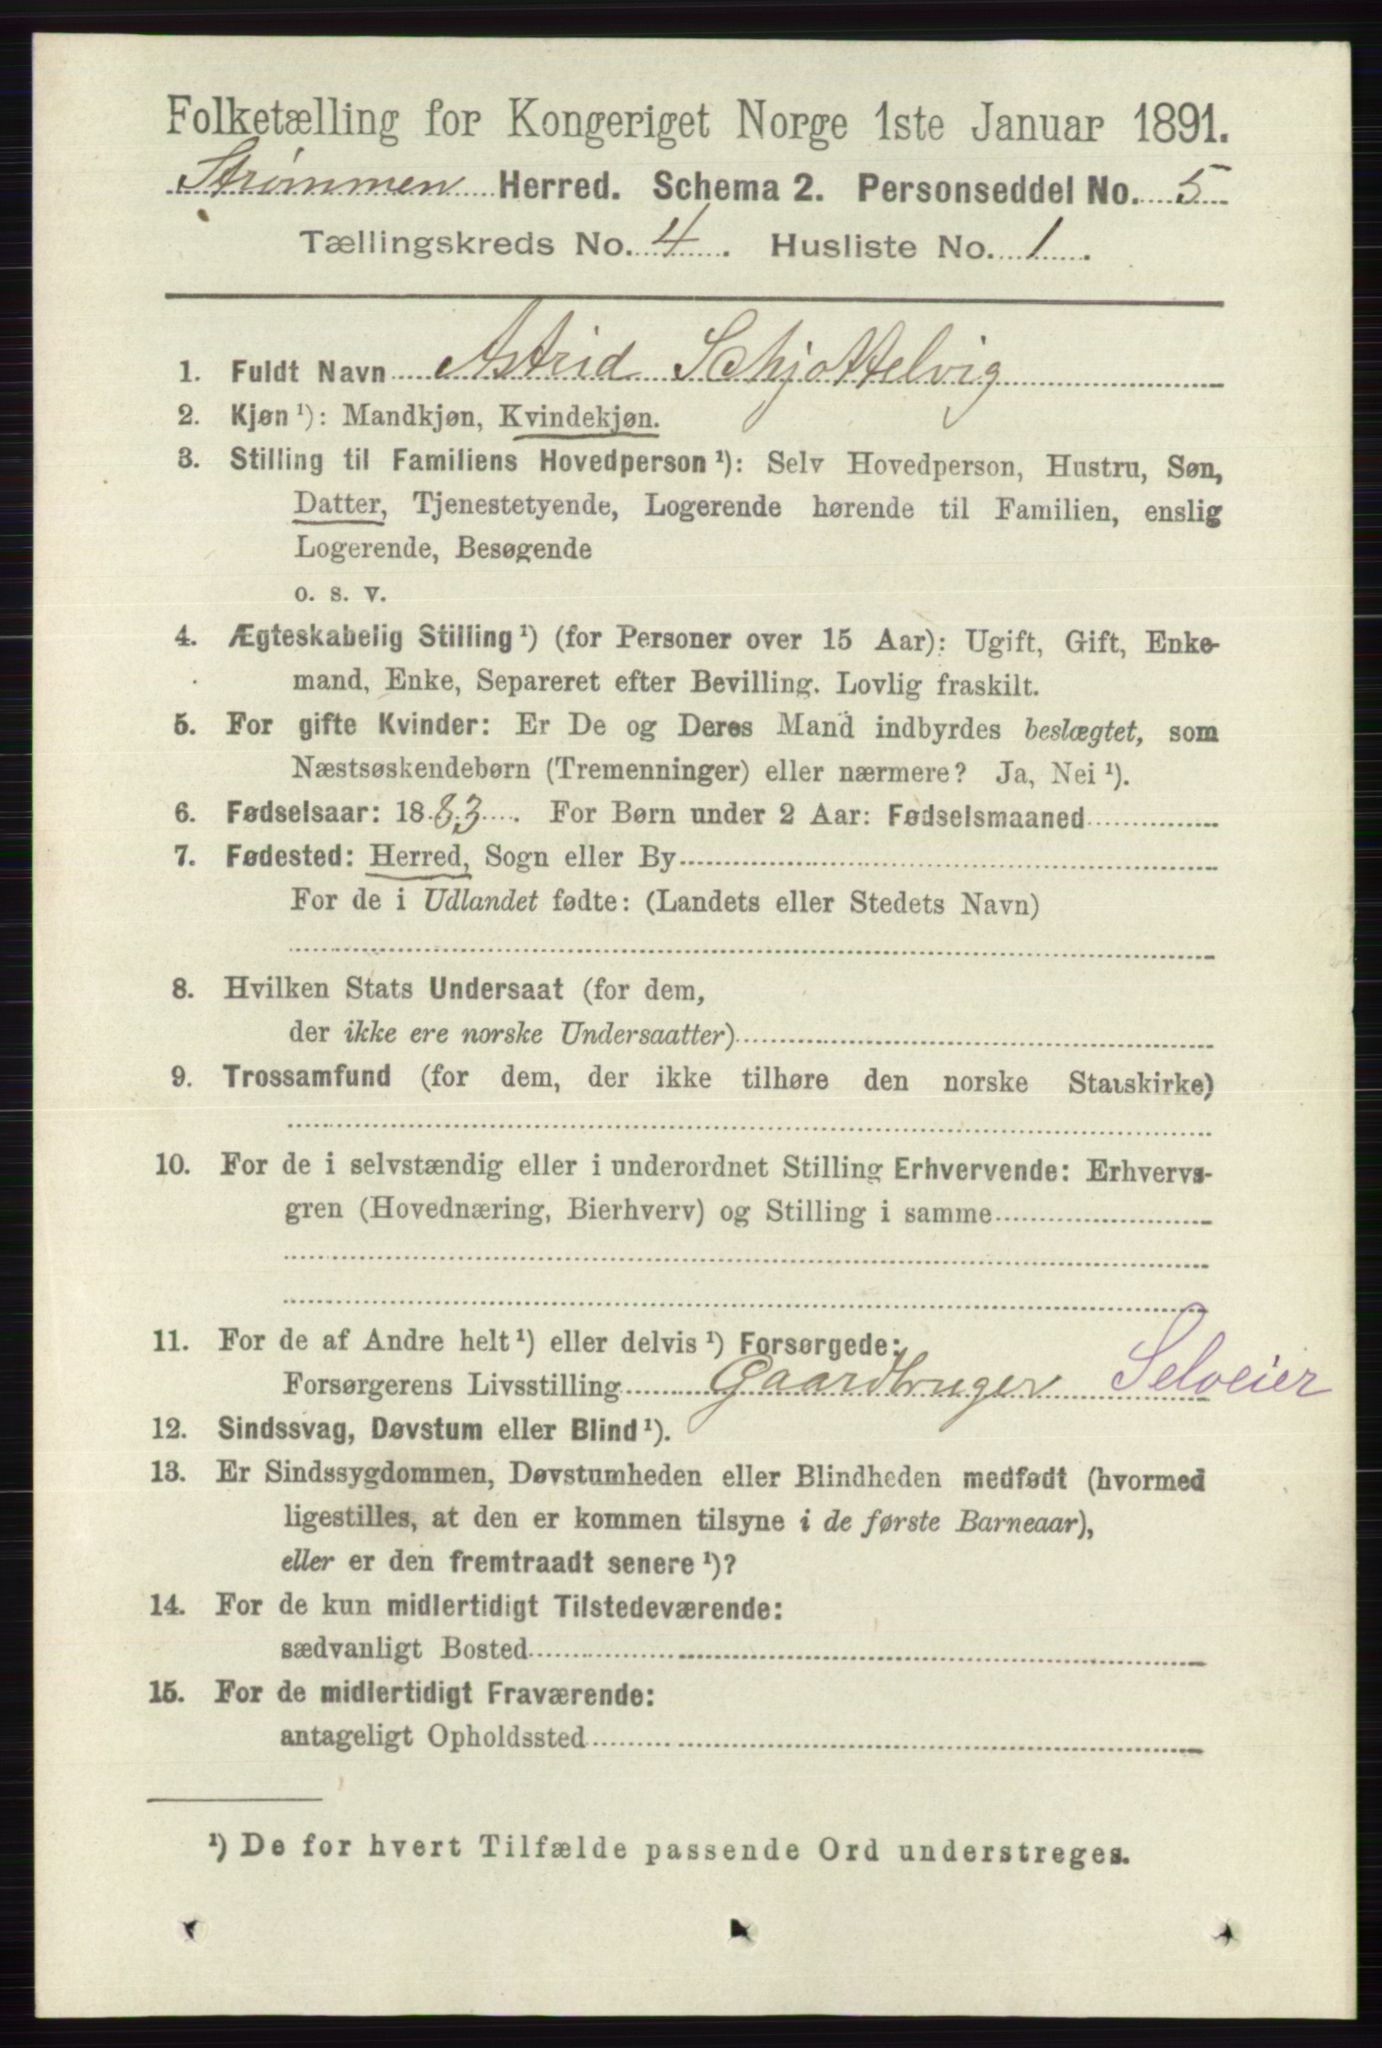 Folketælling for Kongeriget Norge 1ste Januar 1891.
Strømmen Herred. Schema 2. Personseddel No. 5
Tællingskreds No. 4. Husliste No. 1.
1. Fuldt Navn Astrid Schjøttelvig
2. Kjøn¹): Mandkjøn, Kvindekjøn.
3. Stilling til Familiens Hovedperson¹): Selv Hovedperson, Hustru, Søn,
Datter, Tjenestetyende, Logerende hørende til Familien, enslig
Logerende, Besøgende
o. s. v.
4. Ægteskabelig Stilling¹) (for Personer over 15 Aar): Ugift, Gift, Enke-
mand, Enke, Separeret efter Bevilling. Lovlig fraskilt.
5. For gifte Kvinder: Er De og Deres Mand indbyrdes beslægtet, som
Næstsøskendebørn (Tremenninger) eller nærmere? Ja, Nei¹).
6. Fødselsaar: 1883. For Børn under 2 Aar: Fødselsmaaned
7. Fødested: Herred, Sogn eller By
For de i Udlandet fødte: (Landets eller Stedets Navn)
8. Hvilken Stats Undersaat (for dem,
der ikke ere norske Undersaatter)
9. Trossamfund (for dem, der ikke tilhøre den norske Statskirke)
10. For de i selvstændig eller i underordnet Stilling Erhvervende: Erhvervs-
gren (Hovednæring, Bierhverv) og Stilling i samme
11. For de af Andre helt¹) eller delvis¹) Forsørgede:
Forsørgerens Livsstilling Gaardbruger Selveier
12. Sindssvag, Døvstum eller Blind¹).
13. Er Sindssygdommen, Døvstumheden eller Blindheden medfødt (hvormed
ligestilles, at den er kommen tilsyne i de første Barneaar),
eller er den fremtraadt senere¹)?
14. For de kun midlertidigt Tilstedeværende:
sædvanligt Bosted
15. For de midlertidigt Fraværende:
antageligt Opholdssted
¹) De for hvert Tilfælde passende Ord understreges.